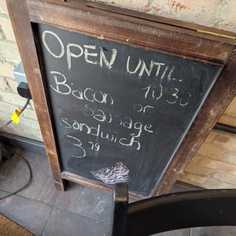 OPEN UNTIL..
10:30
Bacon or
sausage
sandwich
3.79